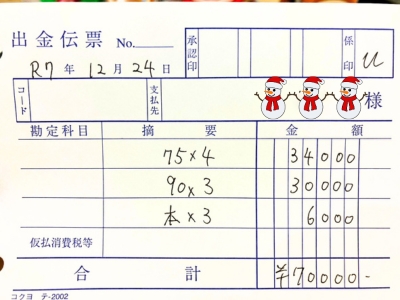 出金伝票 No. 承認印 係印 u
R7年12月24日
コード 支払先 様
勘定科目 摘要 金額
75×4 34000
90×3 30000
本×3 6000
仮払消費税等
合計 ¥70000-
コクヨ テ-2002